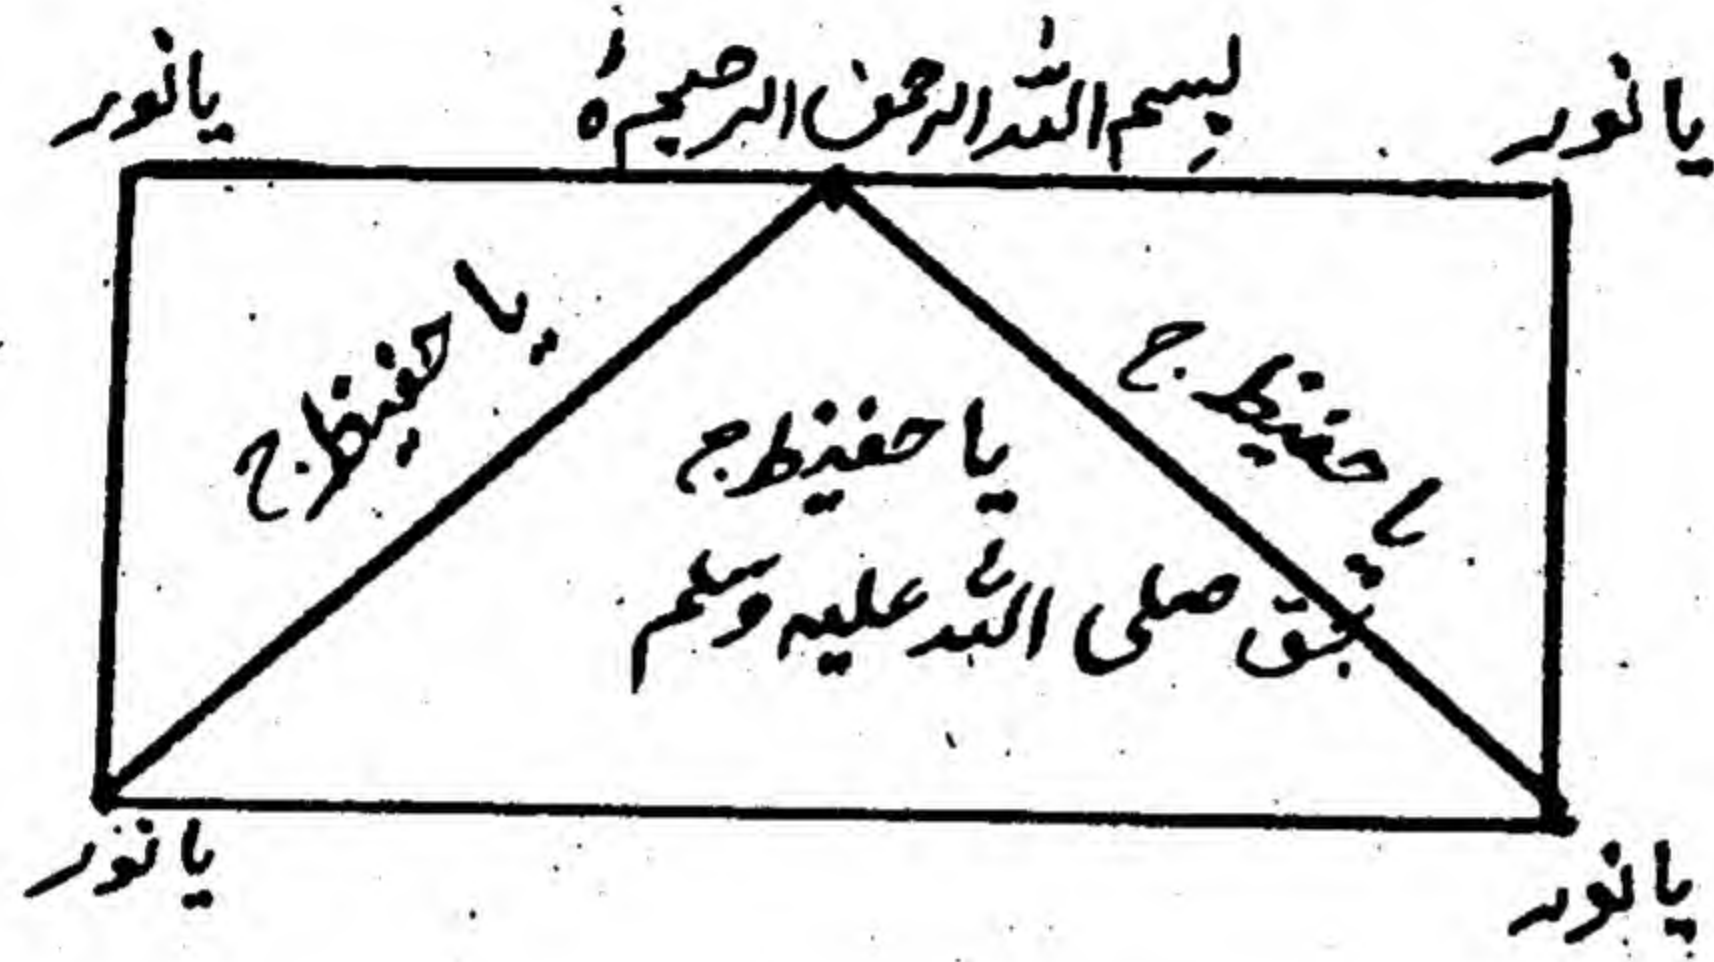 یا نور
بسم اللہ الرحمن الرحیم ہ
یا نور
یا حفیظ ج
یا حفیظ ج
یا حفیظ ج
بحق صلی اللہ علیہ وسلم
یا نور
یا نور